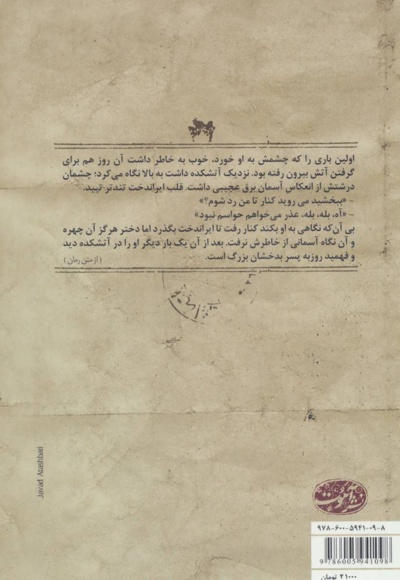 اولین باری را که چشمش به او خورد، خوب به خاطر داشت آن روز هم برای
گرفتن آتش بیرون رفته بود. نزدیک آتشکده داشت به بالا نگاه می‌کرد؛ چشمان
درشتش از انعکاس آسمان برق عجیبی داشت. قلب ایراندخت تندتر تپید.
- «ببخشید می روید کنار تا من رد شوم؟»
- «آه، بله، بله، عذر می‌خواهم حواسم نبود»
بی آن‌که نگاهی به او بکند کنار رفت تا ایراندخت بگذرد اما دختر هرگز آن چهره
و آن نگاه آسمانی از خاطرش نرفت. بعد از آن یک بار دیگر او را در آتشکده دید
و فهمید روزبه پسر بدخشان بزرگ است.
(از متن رمان)
Javad Atashbari
۹۷۸-۶۰۰-۵۹۴۱-۰۹-۸
9786005941098
۲۱۰۰۰ تومان